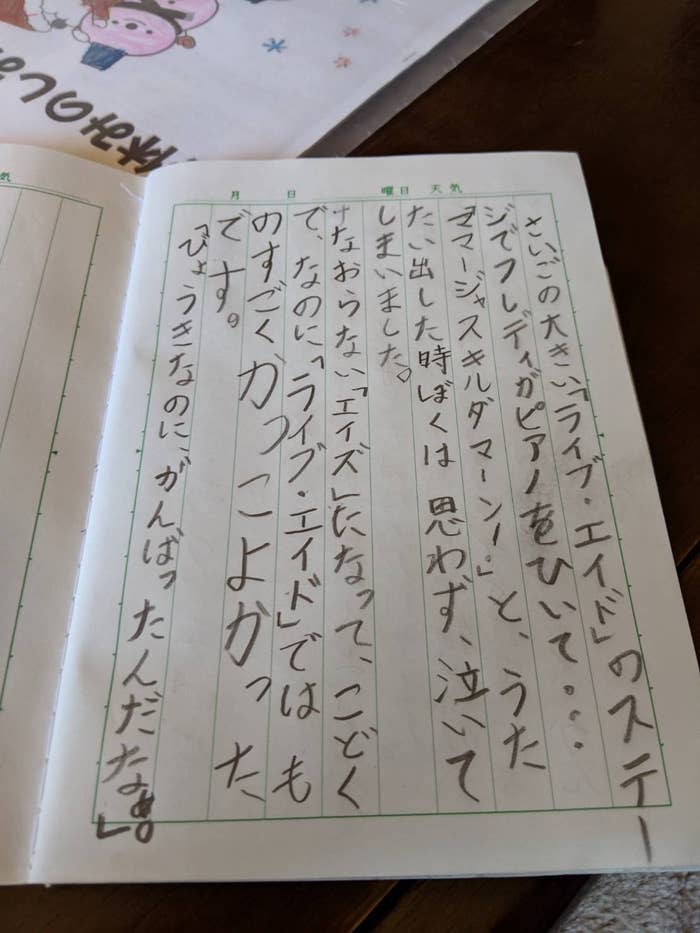 休みのし
気
月 日 曜日 天気
さいごの大きい「ライブ・エイド」のステー
ジでフレディがピアノをひいて・・・
ママージャスキルダマーン!。」と、うた
たい出した時ぼくは思わず、泣いて
しまいました。
なおらない「エイズ」になって、こどく
で、なのに「ライブ・エイド」ではも
のすごくかっこよかった
です。
「びょうきなのに、がんばったんだなぁ。」